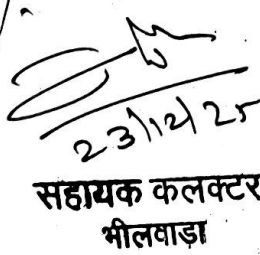 23/12/25
सहायक कलक्टर
भीलवाड़ा